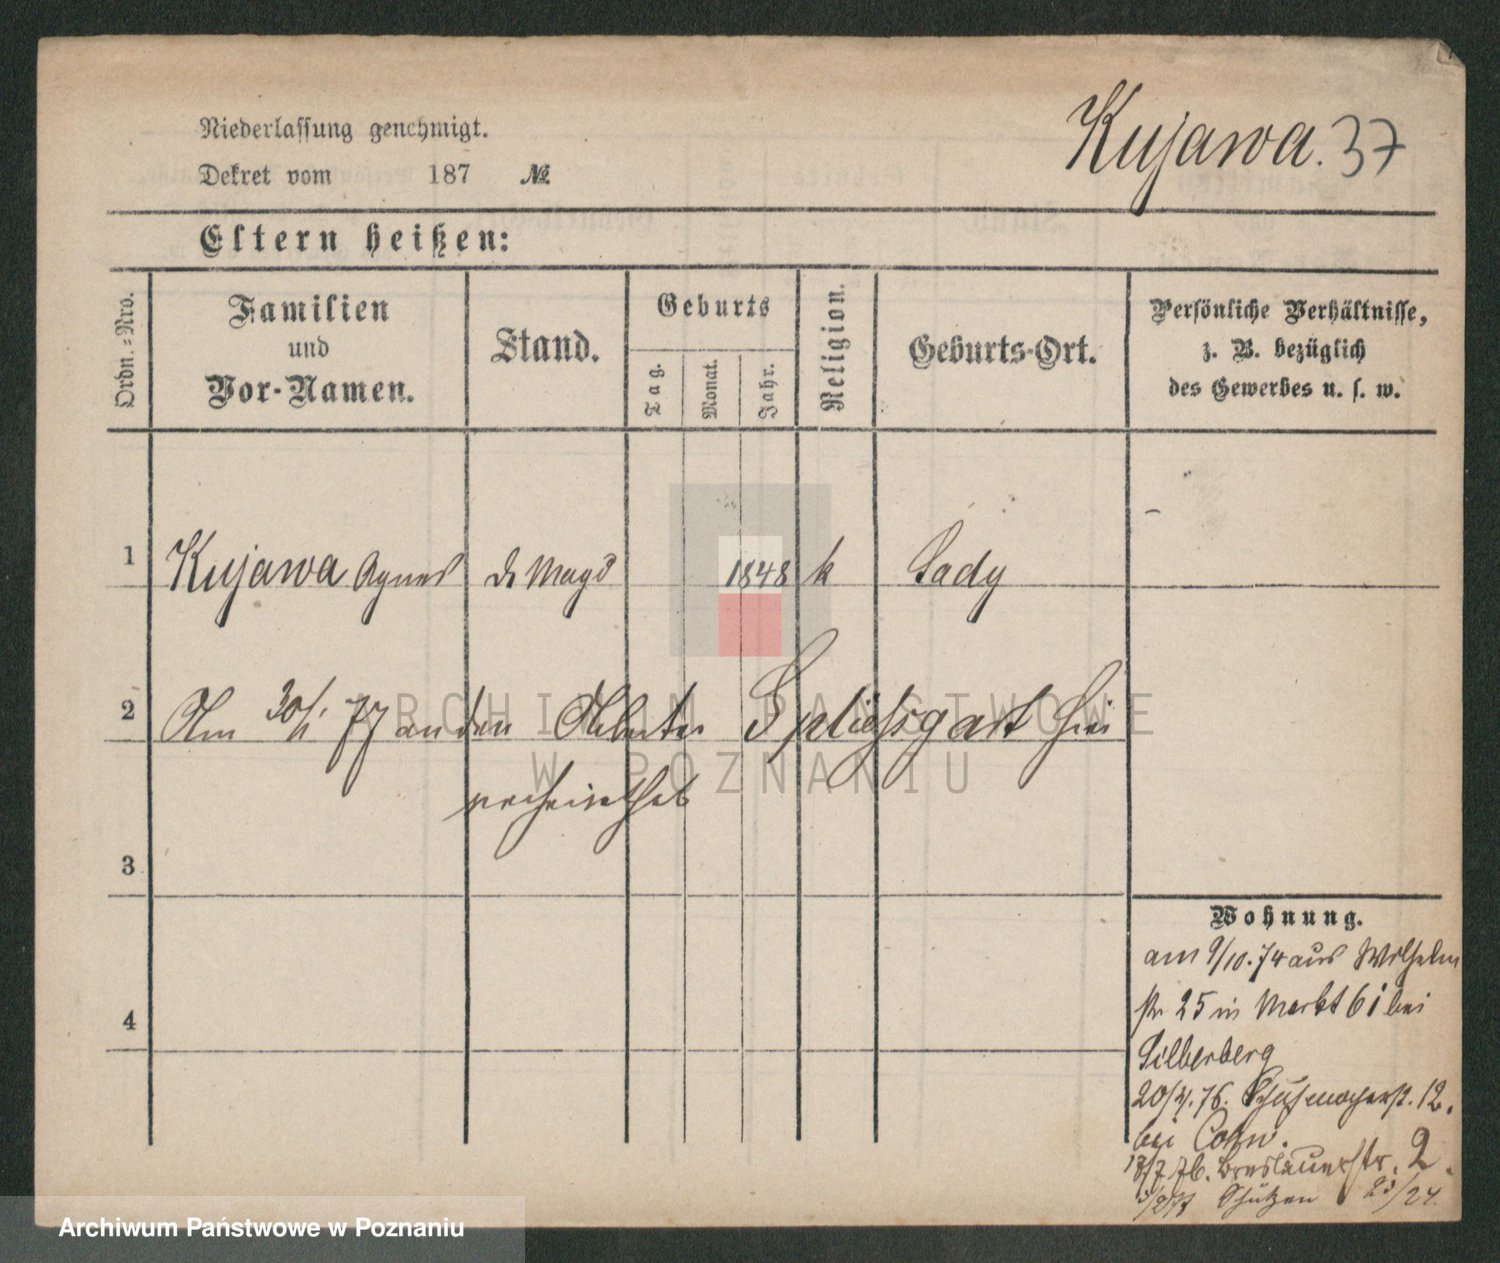 Kujawa. 37
Niederlassung genehmigt.
Dekret vom 187 №
Eltern heißen:
Ordn.=Nro.
Familien
und
Vor-Namen.
Stand.
Geburts
Tag.
Monat.
Jahr.
Religion.
Geburts-Ort.
Persönliche Verhältnisse,
z. B. bezüglich
des Gewerbes u. s. w.
1 Kujawa Agnes d. Magd 1848 k Sady
2 Am 30/1 77 an den Arbeiter hier
verheirathet
3
4
Wohnung.
am 9/10.74 aus Wilhelm
str 25 in Markt 61 bei
Silberberg
Schuhmacherst. 12.
bei Cohn.
18/7 76. Breslauerstr. 2.
Schützen 23/24.
ARCHIWUM PAŃSTWOWE
W POZNANIU
Archiwum Państwowe w Poznaniu